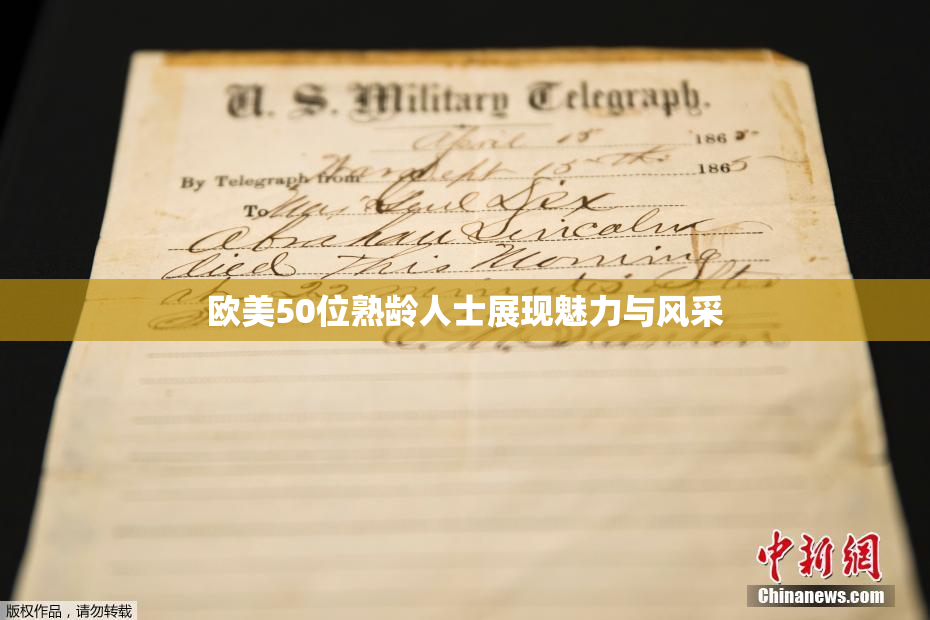 U. S. Military Telegraph.
April 15 1865
By Telegraph from War Dept 15th 1865
To Maj Genl Dix
Abraham Lincoln
died This Morning
at 22 minutes after
欧美50位熟龄人士展现魅力与风采
E. M. Stanton
中新網
Chinanews.com
版权作品，请勿转载